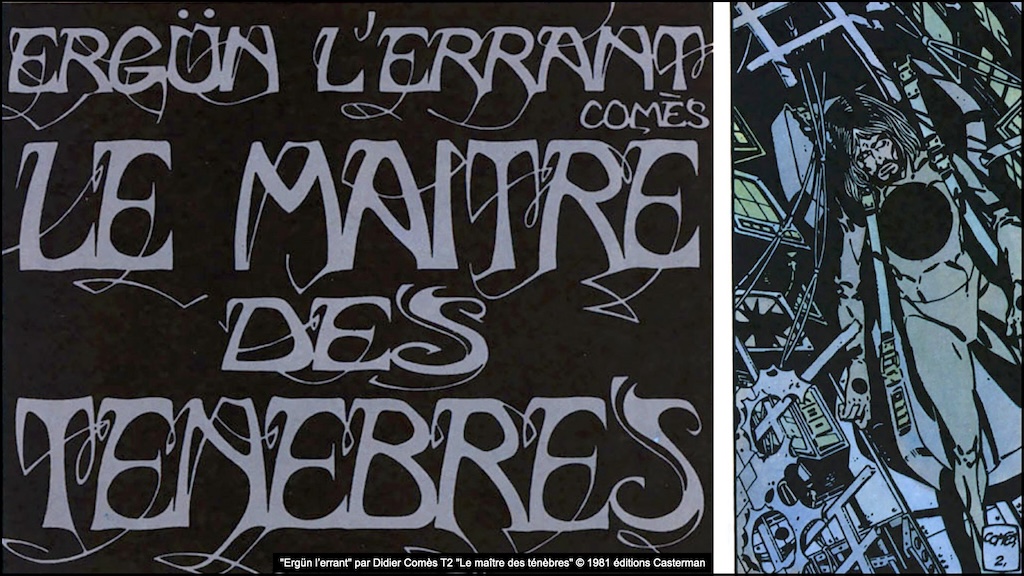 ERGÜN L'ERRANT
COMÈS
LE MAITRE
DES
TENEBRES
"Ergün l'errant" par Didier Comès T2 "Le maître des ténèbres" © 1981 éditions Casterman
COMÈS
2.